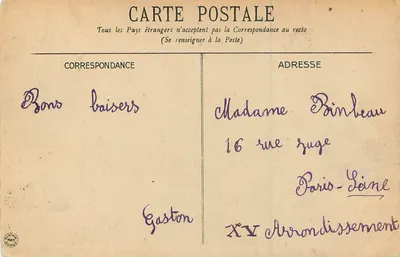 CARTE POSTALE
Tous les Pays étrangers n'acceptent pas la Correspondance au recto
(Se renseigner à la Poste)
CORRESPONDANCE
Bons baisers
Gaston
ADRESSE
Madame Binbeau
16 rue
Paris-Seine
XV Arrondissement